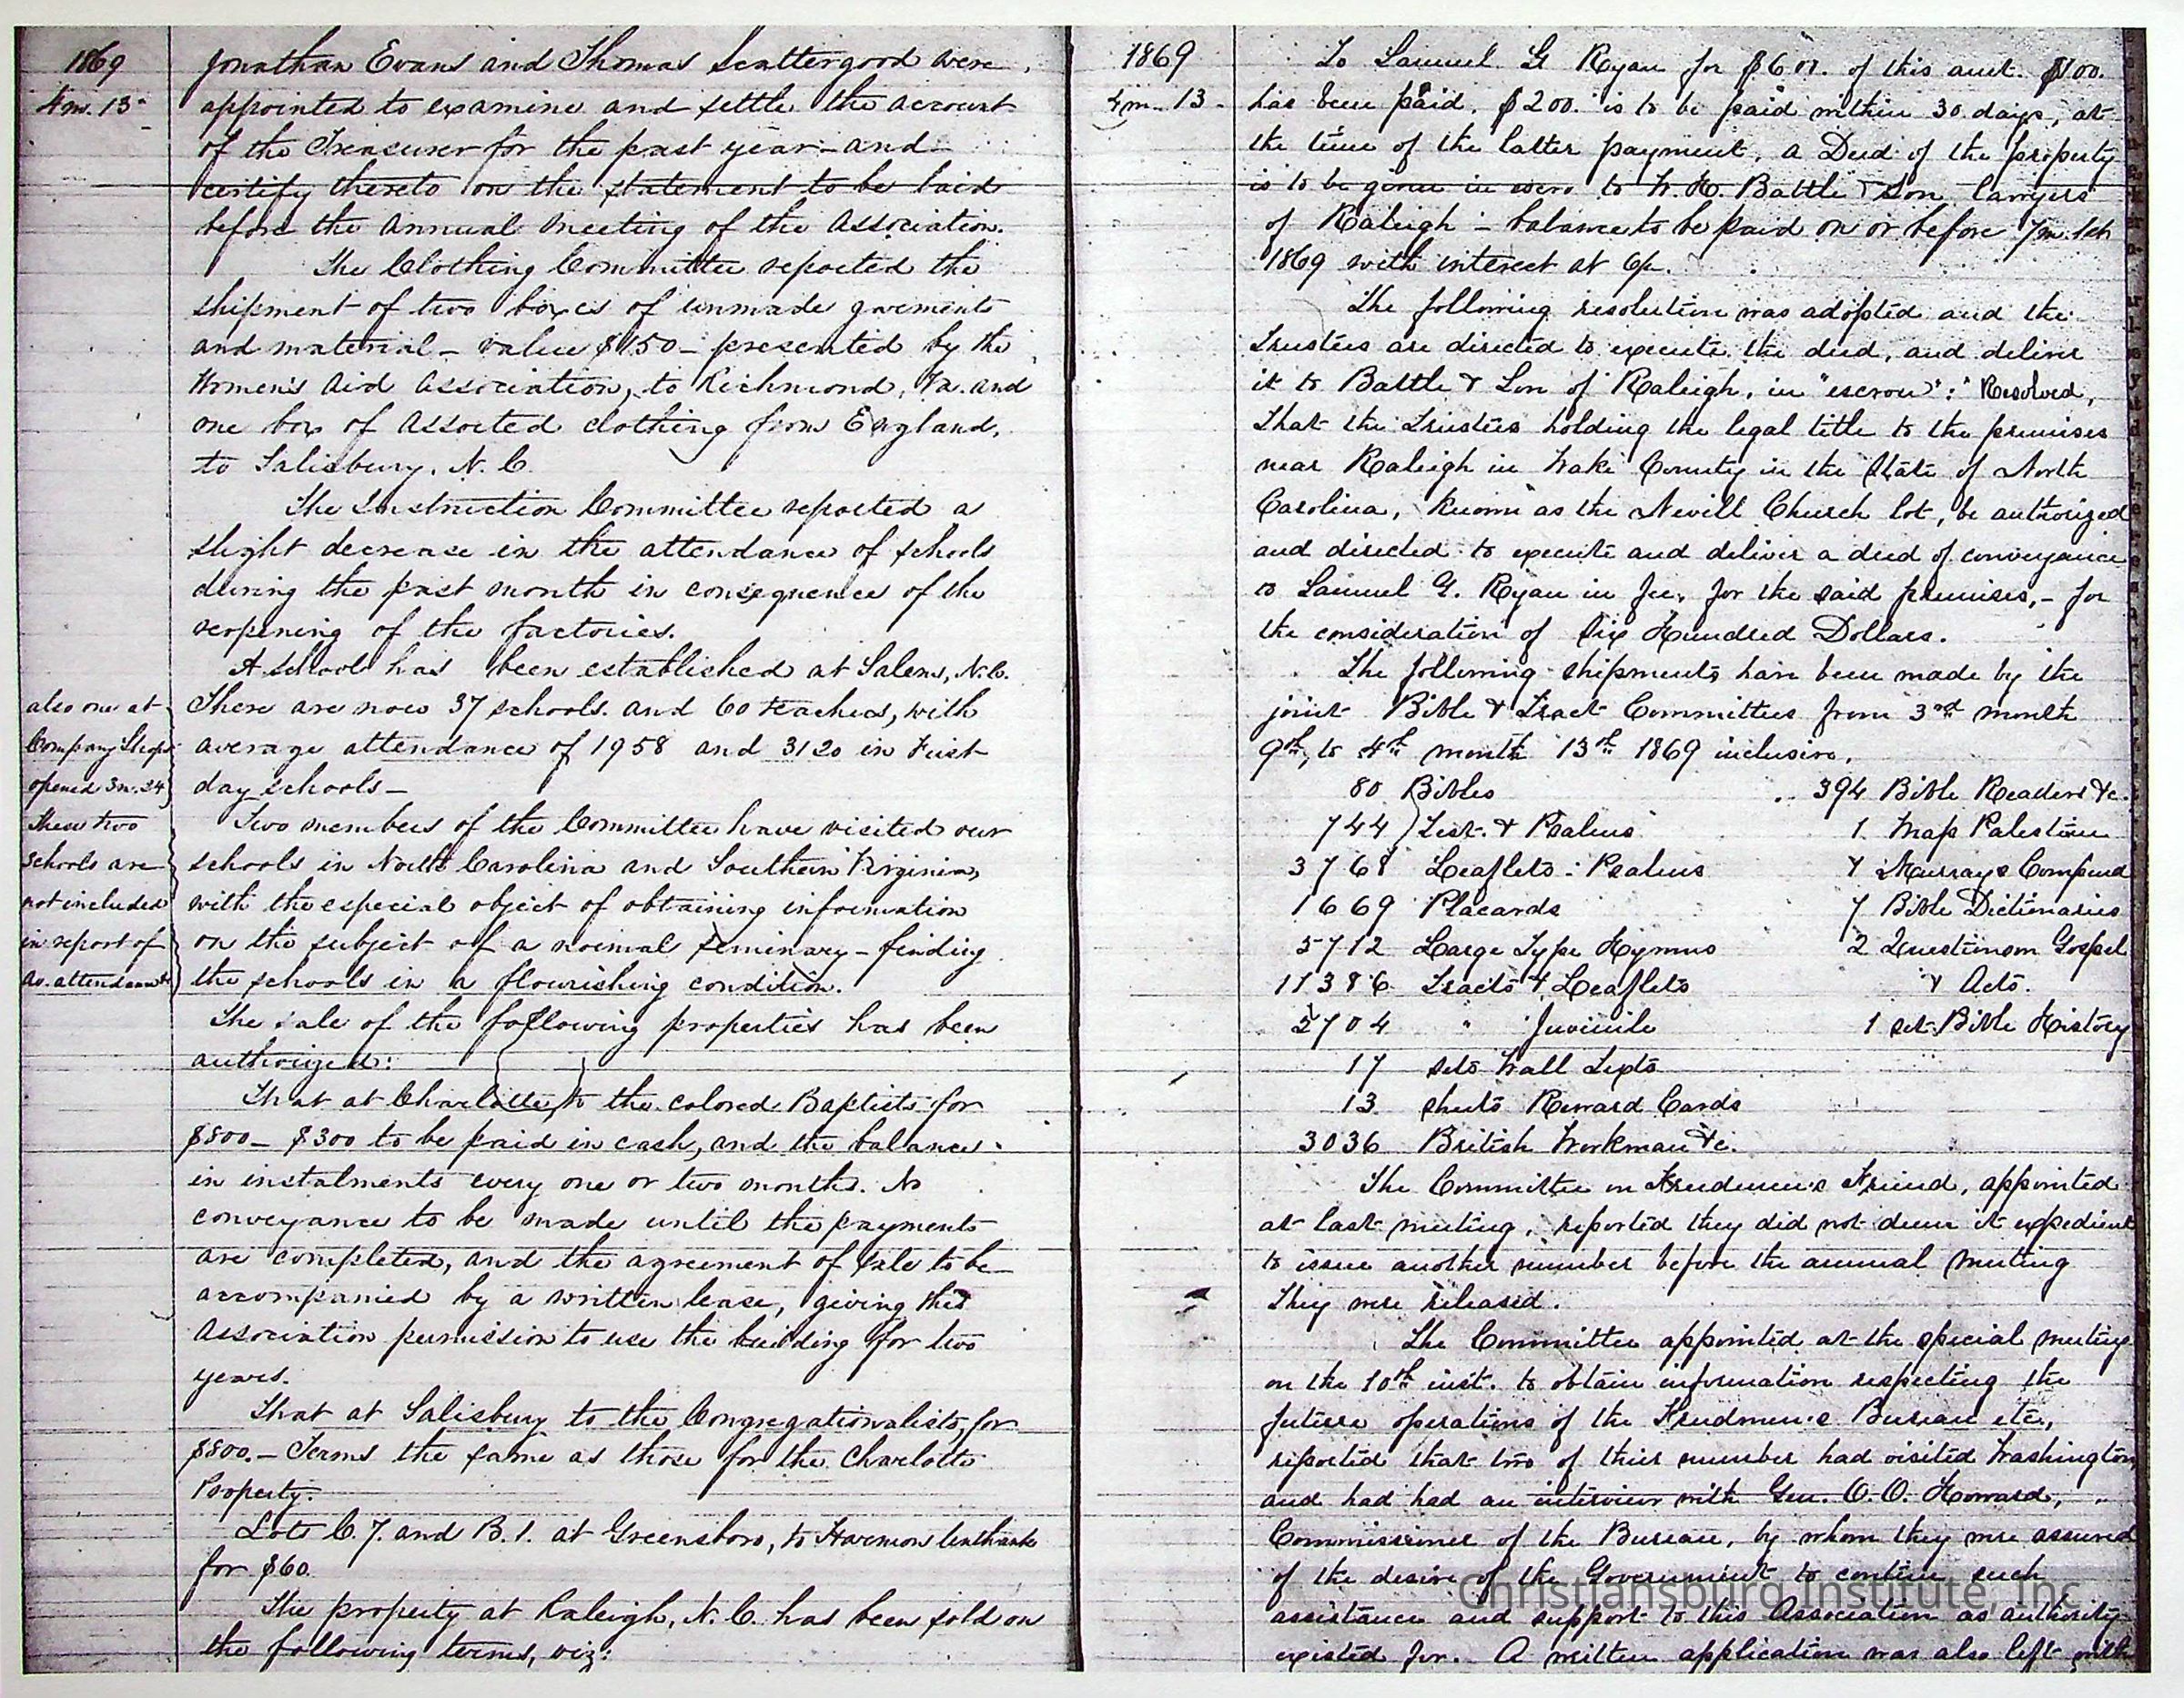 1869
4m. 13
Jonathan Evans and Thomas Scattergood were
appointed to examine and settle the account
of the Treasurer for the past year - and -
certify thereto on the statement to be laid
before the annual meeting of the Association.
The Clothing Committee reported the
shipment of two boxes of unmade garments
and material - value $150 - presented by the
Women's Aid Association, to Richmond, Va. and
one box of assorted clothing from England,
to Salisbury, N.C.
The Instruction Committee reported a
slight decrease in the attendance of schools
during the past month in consequence of the
reopening of the factories.
A school has been established at Salem, N.C.
There are now 37 schools and 60 teachers, with
average attendance of 1958 and 3120 in First
day schools -
also one at
Company Shops
opened 3m. 24
These two
schools are
not included
in report of
av. attendance
Two members of the Committee have visited our
schools in North Carolina and Southern Virginia,
with the especial object of obtaining information
on the subject of a normal seminary - finding
the schools in a flourishing condition.
The sale of the following properties has been
authorized:
That at Charlotte, to the colored Baptists for
$800 - $300 to be paid in cash, and the balance
in instalments every one or two months. No
conveyance to be made until the payments
are completed, and the agreement of sale to be
accompanied by a written lease, giving this
Association permission to use the building for two
years.
That at Salisbury to the Congregationalists, for
$800. - Terms the same as those for the Charlotte
Property.
Lots C. 7. and B. 1. at Greensboro, to Harmon
for $60.
The property at Raleigh, N.C. has been sold on
the following terms, viz:
1869
4m. 13
To Samuel G Ryan for $600. of this amt. $100.
has been paid. $200. is to be paid within 30 days, at
the time of the latter payment, a Deed of the property
is to be given in to W. H. Battle & Son, lawyers
of Raleigh - balance to be paid on or before 7m. 1st
1869 with interest at 6pc.
The following resolution was adopted and the
Trustees are directed to execute the deed, and deliver
it to Battle & Son of Raleigh, in "escrow": "Resolved,
That the Trustees holding the legal title to the premises
near Raleigh in Wake County in the State of North
Carolina, known as the Nevill Church lot, be authorized
and directed to execute and deliver a deed of conveyance
to Samuel G. Ryan in fee, for the said premises, - for
the consideration of Six Hundred Dollars.
The following shipments have been made by the
joint Bible & Tract Committees from 3rd month
9th, to 4th month 13th 1869 inclusive.
80 Bibles 394 Bible Readers &c.
744 Test. & Psalms 1 Map Palestine
3768 Leaflets: Psalms Murrays Compend
1669 Placards 7 Bible Dictionaries
5712 Large Type Hymns 2 Questions on Gospel
11386 Tracts & Leaflets & Acts.
2704 " Juvenile 1 set Bible History
17 sets Wall Texts
13 sheets Reward Cards
3036 British Workman &c.
The Committee on Freedmen's Friend, appointed
at last meeting, reported they did not deem it expedient
to issue another number before the annual meeting
They were released.
The Committee appointed at the special meeting
on the 10th inst. to obtain information respecting the
future operations of the Freedmen's Bureau etc.,
reported that two of their number had visited Washington,
and had had an interview with Gen. O. O. Howard,
Commissioner of the Bureau, by whom they were assured
of the desire of the Government to continue such
assistance and support to this Association as authority
existed for. A written application was also left with
Christiansburg Institute, Inc